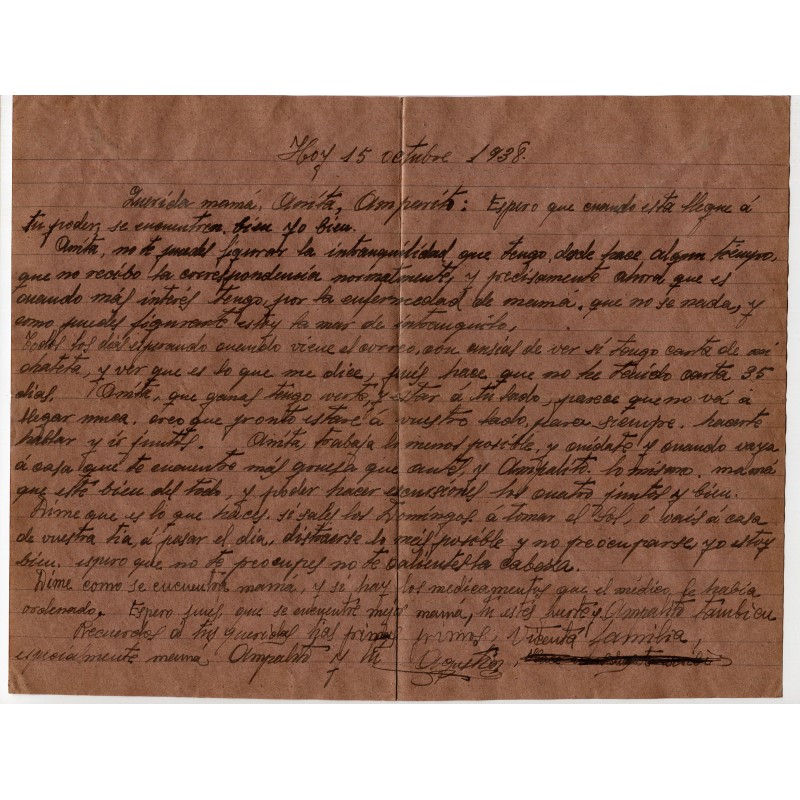 Hoy 15 octubre 1938.
Querida mamá, Anita, Amparito: Espero que cuando esta llegue á
tu poder, se encuentren bien yo bien.
Anita, no te puedes figurar la intranquilidad que tengo, desde hace algun tiempo,
que no recibo la correspondencia normalmente, y precisamente ahora que es
cuando más interés tengo, por la enfermedad de mama, que no se nada, y
como puedes figurarte estoy la mar de intranquilo,
Todos los dias esperando cuando viene el correo, con ansias de ver si tengo carta de mi
chateta, y ver que es lo que me dice, pues hace que no he tenido carta 35
dias. Anita, que ganas tengo verte, y estar á tu lado, parece que no vá á
llegar nunca. creo que pronto estaré á vuestro lado, para siempre. hacerte
hablar y ir juntos. Anita, trabaja lo menos posible, y cuidate y cuando vaya
á casa que te encuentre más gruesa que antes, y Ampalito lo mismo. mamá
que esté bien del todo, y poder hacer escursiones los cuatro juntos y bien.
Dime que es lo que haces, si sales los Domingos á tomar el Sol, ó vais á casa
de vuestra tia, á pasar el dia, distraerse lo más posible y no preocuparse, yo estoy
bien. espero que no te preocupes no te calientes la cabessa.
Dime como se encuentra mamá, y si hay los medicamentos que el médico, le habia
ordenado. Espero pues, que se encuentre mejor mama, tu estes fuerte y Ampalito tambien
Recuerdos á tus queridas tias primas primos, Vicenta familia,
especialmente mamá Ampalito y tu Agustin,